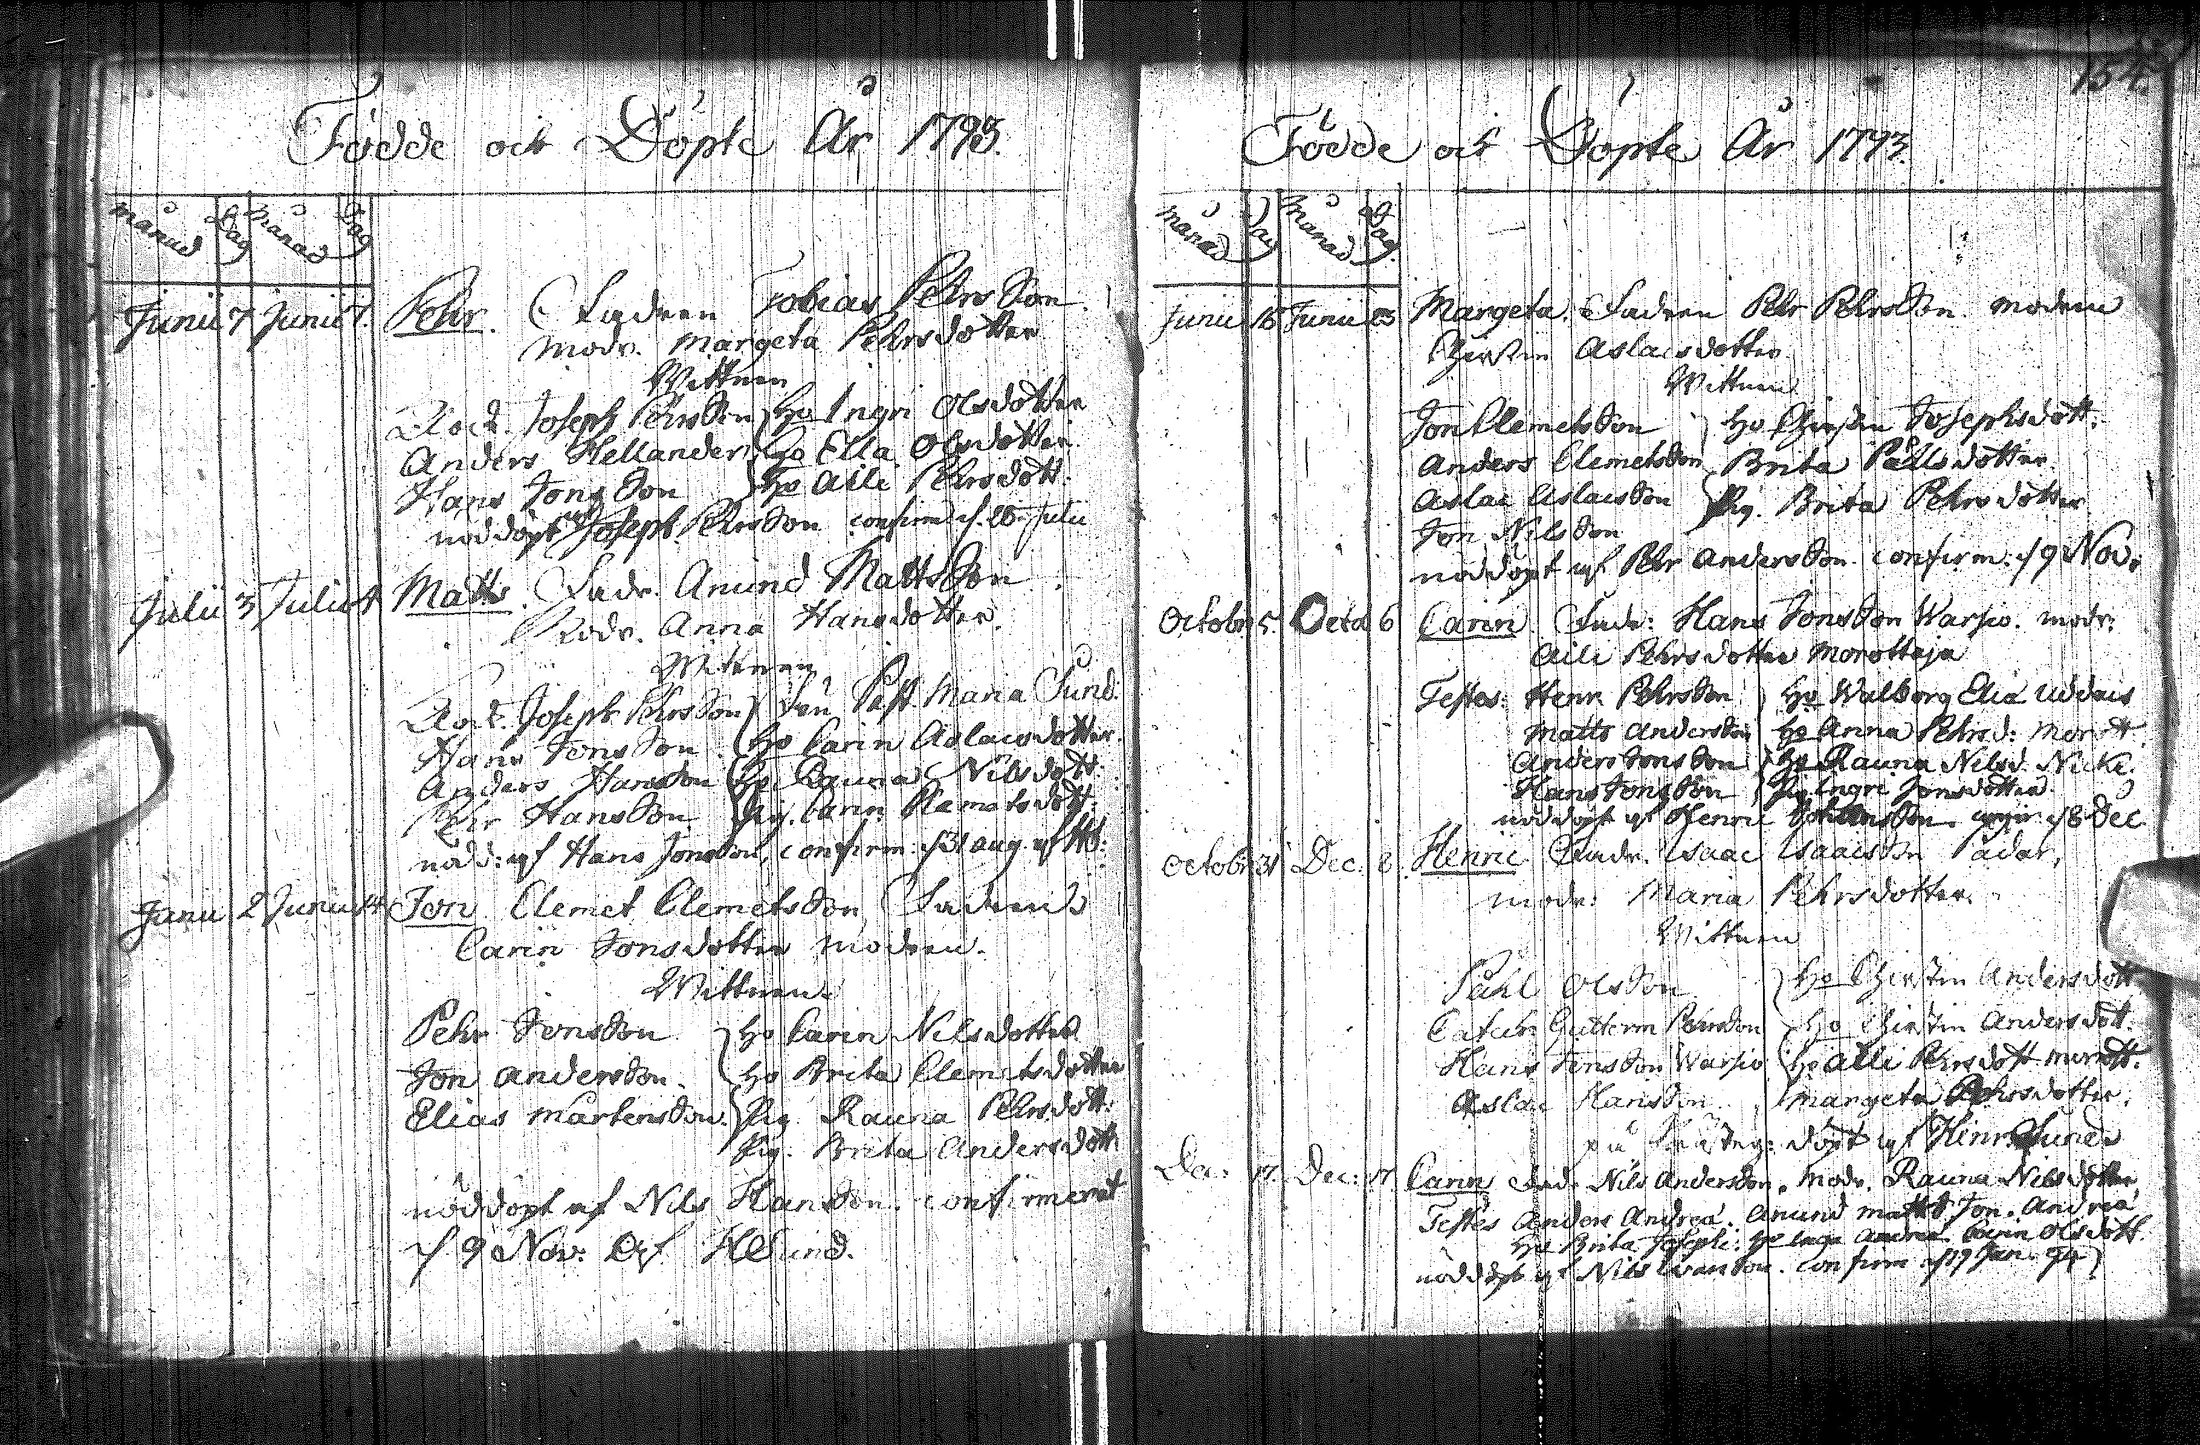 Födde och Döpte År 1793.
månad Dag månad Dag
Junii 7 Junii 7. Pehr. Fadren Tobias Pehrsson
modr. Margeta Pehrsdotter
Wittnen
Joseph Pehrsson } Ho Ingri Olsdotter
Anders Hellander } Ho Ella Olsdotter
Hans Jonsson } Ho Aili Pehrsdott.
nöddöpt af Joseph Pehrsson confirm. d. Julii
Julii 3 Julii 4 Matts. Fadr. Anund Mattsson
Modr. Anna Hansdotter.
Wittnen
Joseph Pehrsson } Maria Sund.
Hans Jonsson } Ho Carin Aslacsdotter.
Anders Hansson } Ho Rauna Nilsdott.
Pehr Hansson } Pig. Carin Clemetsdott.
nödd: af Hans Jonsson, confirm: d 31 aug. af HS:
Junii 2 Junii 14 Jon Clemet Clemetsson Fadren
Carin Jonsdotter modren.
Wittnen.
Pehr Jonsson } Ho Carin Nilsdotter
Jon Andersson. } Ho Brita Clemetsdotter
Elias Mårtensson. } Pig. Rauna Pehrsdott:
Pig. Brita Andersdott.
nöddöpt af Nils Hansson. confirmerat
d 9 Nov: af HSund.
154.
Födde och Döpte År 1793.
månad Dag månad Dag
Junii 15 Junii Margeta. Fadren Pehr Pehrsson. modren
Chirstin Aslacsdotter
Wittnen
Jon Clemetsson } Ho Chirstin Josephsdott.
Anders Clemetsson } Brita Påhlsdotter
Aslac Aslacsson } Pig. Brita Pehrsdotter
Jon Nilsson
nöddöpt af Pehr Andersson. confirm: d 9 Nov.
Octobr 5. Octo 6 Carin. Fadr: Hans Jonsson Warpio. modr:
Aili Pehrsdotter Morottaja
Testes: Henr. Pehrsson } Ho Walborg Eliæ Uddais
Matts Andersson } Ho Anna Pehrsd: Morott.
Anders Jonsson } Ho Rauna Nilsd. Nicki.
Hans Jonsson } Pig Ingri Jonsdotter.
nöddöpt af Henric d 8 Dec
Octobr 31 Dec. 8. Henric Fadr. Isaac Isaacson Padar,
modr: Maria Pehrsdotter.
Wittnen
Påhl Olsson } Ho Chirstin Andersdott
Catech: Gutterm Pehrsson } Ho Chirstin Andersdott.
Hans Jonsson Warpio } Ho Aili Pehrsdott Morott.
Aslac Hansson } Margeta Pehrsdotter.
döpt af Hinr. Sund
Dec: 17. Dec: 17 Carin Fadr. Nils Andersson, Modr. Rauna Nilsdotter
Testes Anders Andreæ. Anund Matts. Jon. Andreæ
Ho Brita Josephi. Ho Andreæ. Carin Olsdott.
nöddöpt af Nils Ivarsson. confirm d 17 Jan. 94